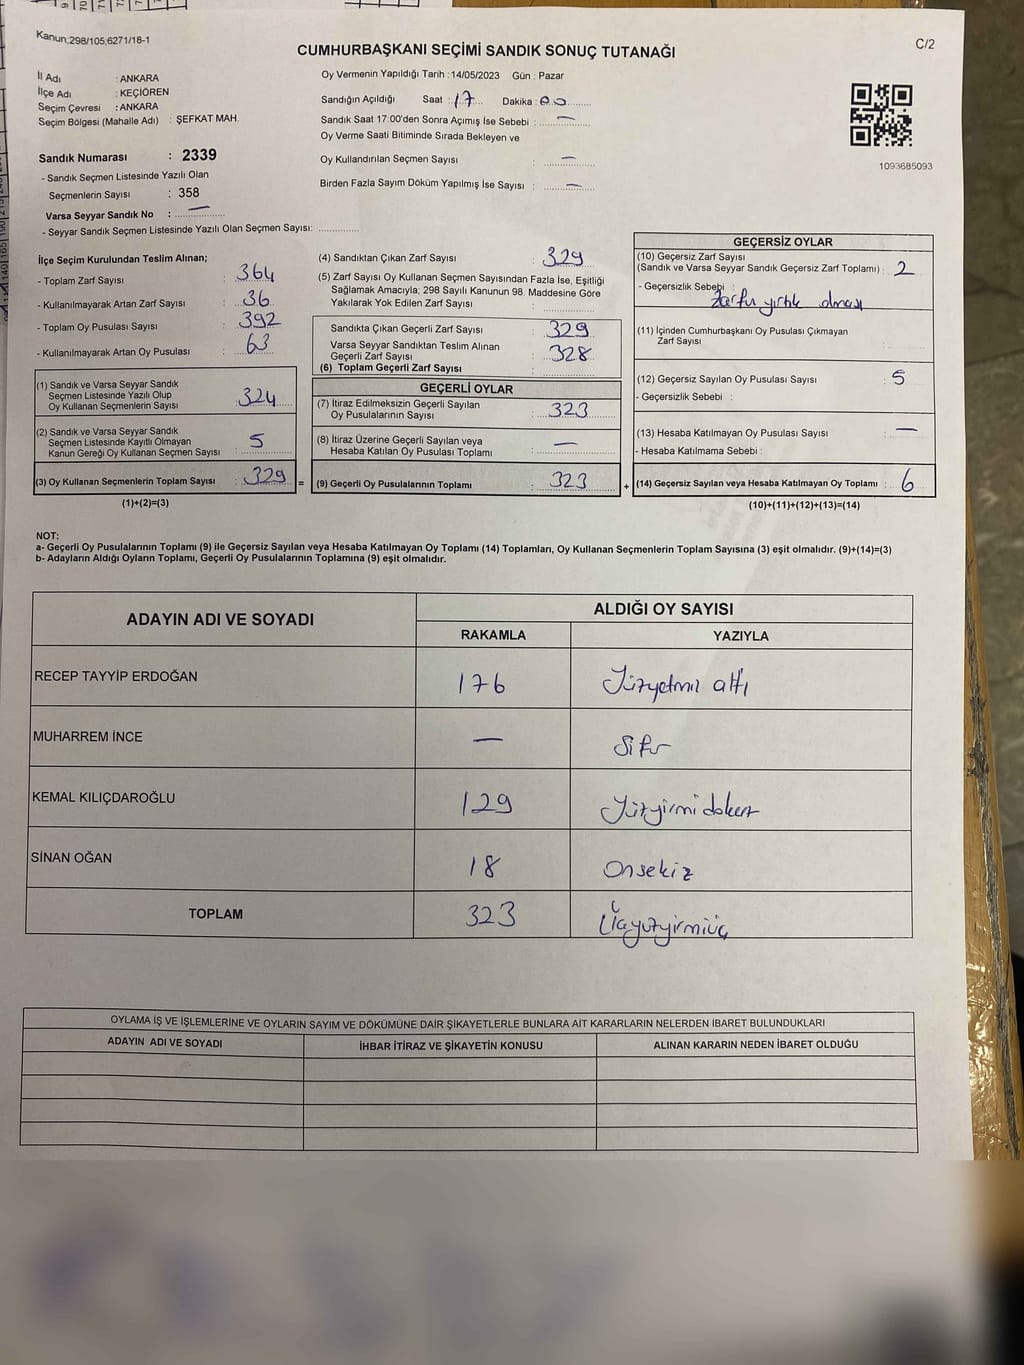 Kanun;298/105;6271/18-1
C/2
CUMHURBAŞKANI SEÇİMİ SANDIK SONUÇ TUTANAĞI
İl Adı : ANKARA
İlçe Adı : KEÇİÖREN
Seçim Çevresi : ANKARA
Seçim Bölgesi (Mahalle Adı) : ŞEFKAT MAH.
Sandık Numarası : 2339
- Sandık Seçmen Listesinde Yazılı Olan
Seçmenlerin Sayısı : 358
Varsa Seyyar Sandık No : —
- Seyyar Sandık Seçmen Listesinde Yazılı Olan Seçmen Sayısı:
Oy Vermenin Yapıldığı Tarih : 14/05/2023 Gün : Pazar
Sandığın Açıldığı Saat : 17 Dakika : 00
Sandık Saat 17:00'den Sonra Açımış İse Sebebi : —
Oy Verme Saati Bitiminde Sırada Bekleyen ve
Oy Kullandırılan Seçmen Sayısı : —
Birden Fazla Sayım Döküm Yapılmış İse Sayısı : —
1093685093
İlçe Seçim Kurulundan Teslim Alınan;
- Toplam Zarf Sayısı : 364
- Kullanılmayarak Artan Zarf Sayısı : 36
- Toplam Oy Pusulası Sayısı : 392
- Kullanılmayarak Artan Oy Pusulası : 63
(1) Sandık ve Varsa Seyyar Sandık
Seçmen Listesinde Yazılı Olup
Oy Kullanan Seçmenlerin Sayısı : 324
(2) Sandık ve Varsa Seyyar Sandık
Seçmen Listesinde Kayıtlı Olmayan
Kanun Gereği Oy Kullanan Seçmen Sayısı : 5
(3) Oy Kullanan Seçmenlerin Toplam Sayısı : 329 =
(1)+(2)=(3)
(4) Sandıktan Çıkan Zarf Sayısı : 329
(5) Zarf Sayısı Oy Kullanan Seçmen Sayısından Fazla İse, Eşitliği
Sağlamak Amacıyla; 298 Sayılı Kanunun 98. Maddesine Göre
Yakılarak Yok Edilen Zarf Sayısı :
Sandıkta Çıkan Geçerli Zarf Sayısı : 329
Varsa Seyyar Sandıktan Teslim Alınan
Geçerli Zarf Sayısı : 328
(6) Toplam Geçerli Zarf Sayısı :
GEÇERLİ OYLAR
(7) İtiraz Edilmeksizin Geçerli Sayılan
Oy Pusulalarının Sayısı : 323
(8) İtiraz Üzerine Geçerli Sayılan veya
Hesaba Katılan Oy Pusulası Toplamı : —
(9) Geçerli Oy Pusulalarının Toplamı : 323 +
GEÇERSİZ OYLAR
(10) Geçersiz Zarf Sayısı
(Sandık ve Varsa Seyyar Sandık Geçersiz Zarf Toplamı) : 2
- Geçersizlik Sebebi : Zarfın yırtık olması
(11) İçinden Cumhurbaşkanı Oy Pusulası Çıkmayan
Zarf Sayısı :
(12) Geçersiz Sayılan Oy Pusulası Sayısı : 5
- Geçersizlik Sebebi :
(13) Hesaba Katılmayan Oy Pusulası Sayısı : —
- Hesaba Katılmama Sebebi :
(14) Geçersiz Sayılan veya Hesaba Katılmayan Oy Toplamı : 6
(10)+(11)+(12)+(13)=(14)
NOT:
a- Geçerli Oy Pusulalarının Toplamı (9) ile Geçersiz Sayılan veya Hesaba Katılmayan Oy Toplamı (14) Toplamları, Oy Kullanan Seçmenlerin Toplam Sayısına (3) eşit olmalıdır. (9)+(14)=(3)
b- Adayların Aldığı Oyların Toplamı, Geçerli Oy Pusulalarının Toplamına (9) eşit olmalıdır.
ADAYIN ADI VE SOYADI
ALDIĞI OY SAYISI
RAKAMLA YAZIYLA
RECEP TAYYİP ERDOĞAN 176 Yüzyetmiş altı
MUHARREM İNCE — Sıfır
KEMAL KILIÇDAROĞLU 129 Yüzyirmi dokuz
SİNAN OĞAN 18 Onsekiz
TOPLAM 323 Üçyüzyirmiüç
OYLAMA İŞ VE İŞLEMLERİNE VE OYLARIN SAYIM VE DÖKÜMÜNE DAİR ŞİKAYETLERLE BUNLARA AİT KARARLARIN NELERDEN İBARET BULUNDUKLARI
ADAYIN ADI VE SOYADI İHBAR İTİRAZ VE ŞİKAYETİN KONUSU ALINAN KARARIN NEDEN İBARET OLDUĞU